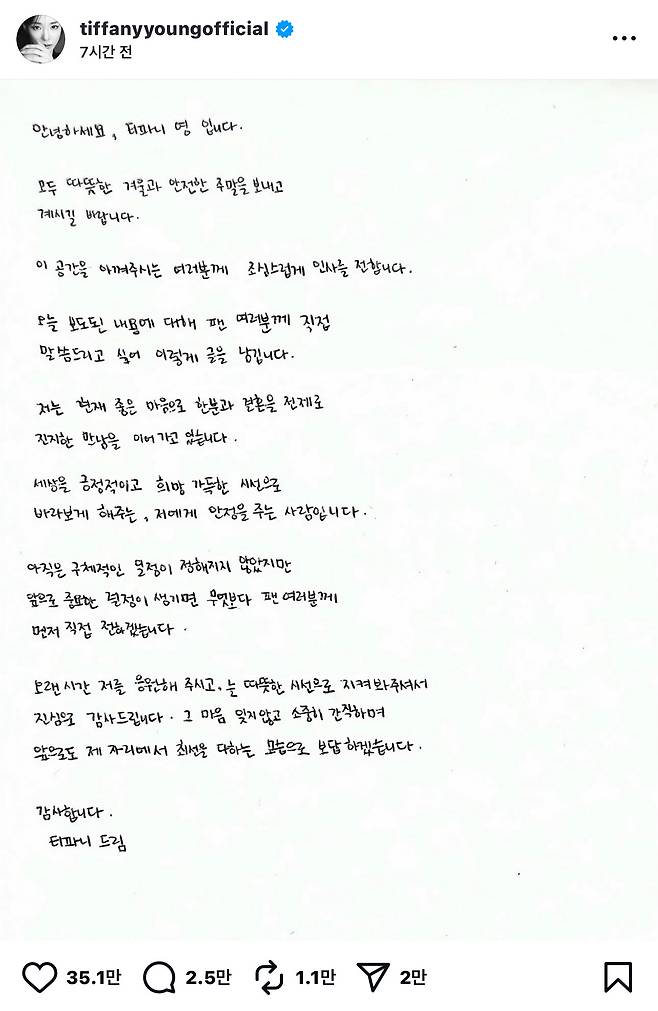 tiffanyyoungofficial
7시간 전
안녕하세요, 티파니 영 입니다.
모두 따뜻한 겨울과 안전한 주말을 보내고
계시길 바랍니다.
이 공간을 아껴주시는 여러분께 조심스럽게 인사를 전합니다.
오늘 보도된 내용에 대해 팬 여러분께 직접
말씀드리고 싶어 이렇게 글을 남깁니다.
저는 현재 좋은 마음으로 한분과 결혼을 전제로
진지한 만남을 이어가고 있습니다.
세상을 긍정적이고 희망 가득한 시선으로
바라보게 해주는, 저에게 안정을 주는 사람입니다.
아직은 구체적인 일정이 정해지지 않았지만
앞으로 중요한 결정이 생기면 무엇보다 팬 여러분께
먼저 직접 전하겠습니다.
오랜시간 저를 응원해 주시고, 늘 따뜻한 시선으로 지켜봐주셔서
진심으로 감사드립니다. 그 마음 잊지않고 소중히 간직하며
앞으로도 제 자리에서 최선을 다하는 모습으로 보답하겠습니다.
감사합니다.
티파니 드림
35.1만 2.5만 1.1만 2만